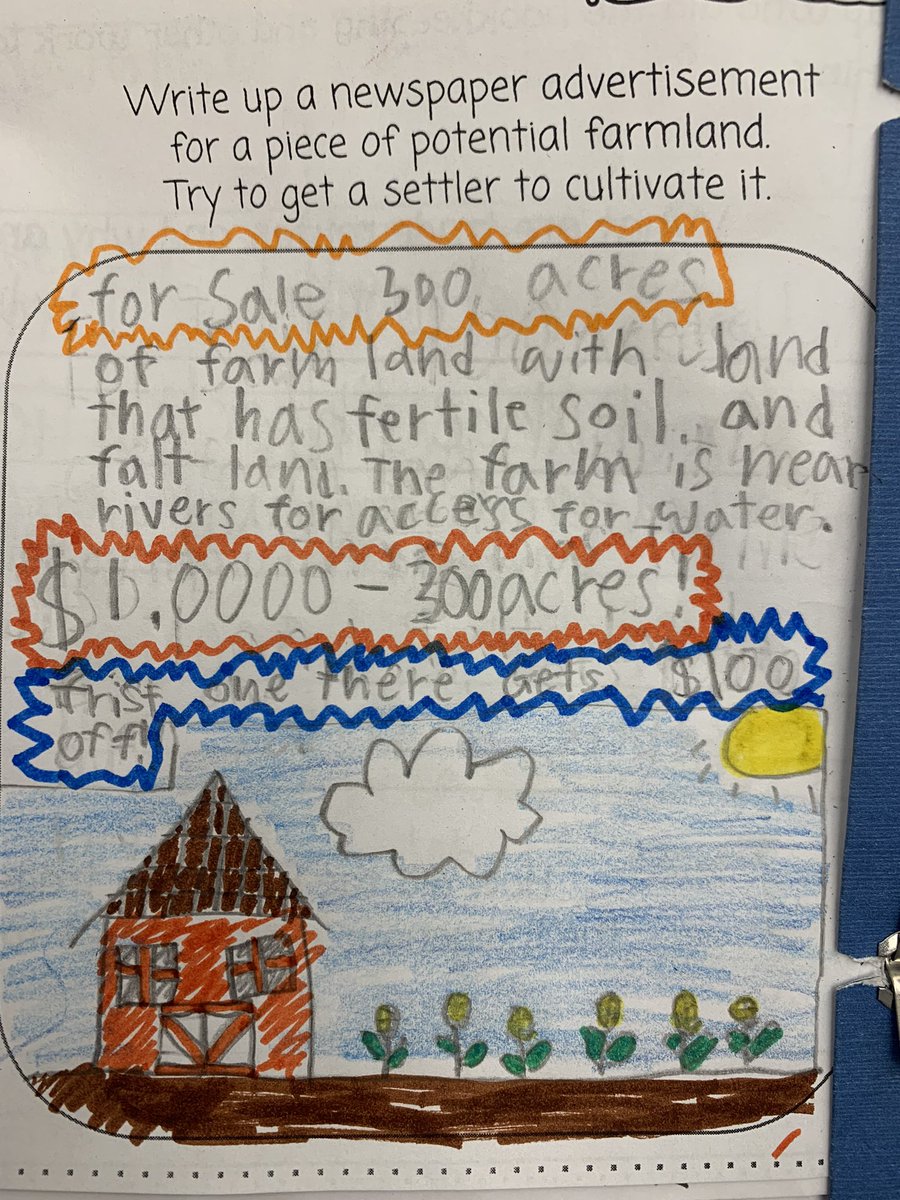 Write up a newspaper advertisement
for a piece of potential farmland.
Try to get a settler to cultivate it.
for Sale 300, acres
of farm land with land
that has fertile soil. and
falt land. The farm is near
rivers for access for water.
$1.0000 - 300 acres!
Frist one there Gets $100
off!